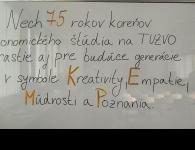 Nech 75 rokov koreňov
onomického štúdia na TUZVO
rastie aj pre budúce generácie
v symbole Kreativity, Empatie,
Múdrosti a Poznania.